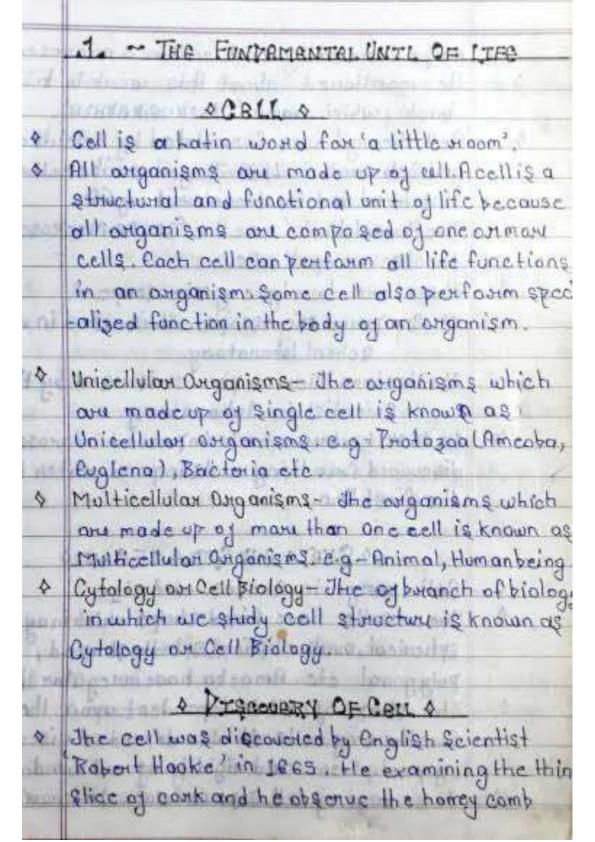 .1. ~ THE FUNDAMENTAL UNTL OF LIFE
◊ CELL ◊
◊ Cell is a Latin word for 'a little room'.
◊ All organisms are made up of cell. A cell is a
structural and functional unit of life because
all organisms are composed of one or more
cells. Each cell can perform all life functions
in an organism. Some cell also perform speci
-alized function in the body of an organism.
◊ Unicellular Organisms- The organisms which
are made up of single cell is known as
Unicellular organisms. e.g Protozoa (Amoeba,
Euglena), Bacteria etc.
◊ Multicellular Organisms- The organisms which
are made up of more than one cell is known as
Multicellular Organisms. e.g- Animal, Human being.
◊ Cytology or Cell Biology- The of branch of biology
in which we study cell structure is known as
Cytology or Cell Biology.
◊ DISCOVERY OF CELL ◊
◊ The cell was discovered by English Scientist
'Robert Hooke' in 1665. He examining the thin
slice of cork and he observe the honey comb